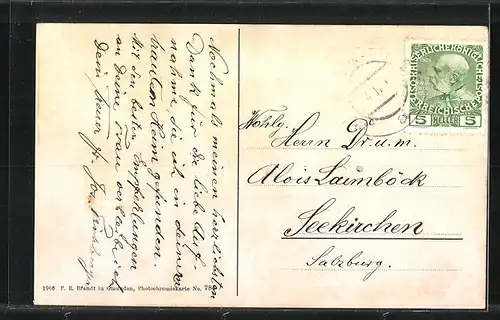 Nochmals meinen herzlichsten
Dank für die liebe Auf-
nahme die ich in deinem
trauten Heim gefunden.
Mit den besten Empfehlungen
an Deine Frau verbleibe
Dein treuer Jos.
Wohlg.
Herrn Dr. u. m.
Alois Laimböck
Seekirchen
Salzburg.
KAISERLICHE KÖNIGLICHE
ÖSTERREICHISCHE POST
5 HELLER 5
1906 F. E. Brandt in Gmunden, Photochromiekarte No.